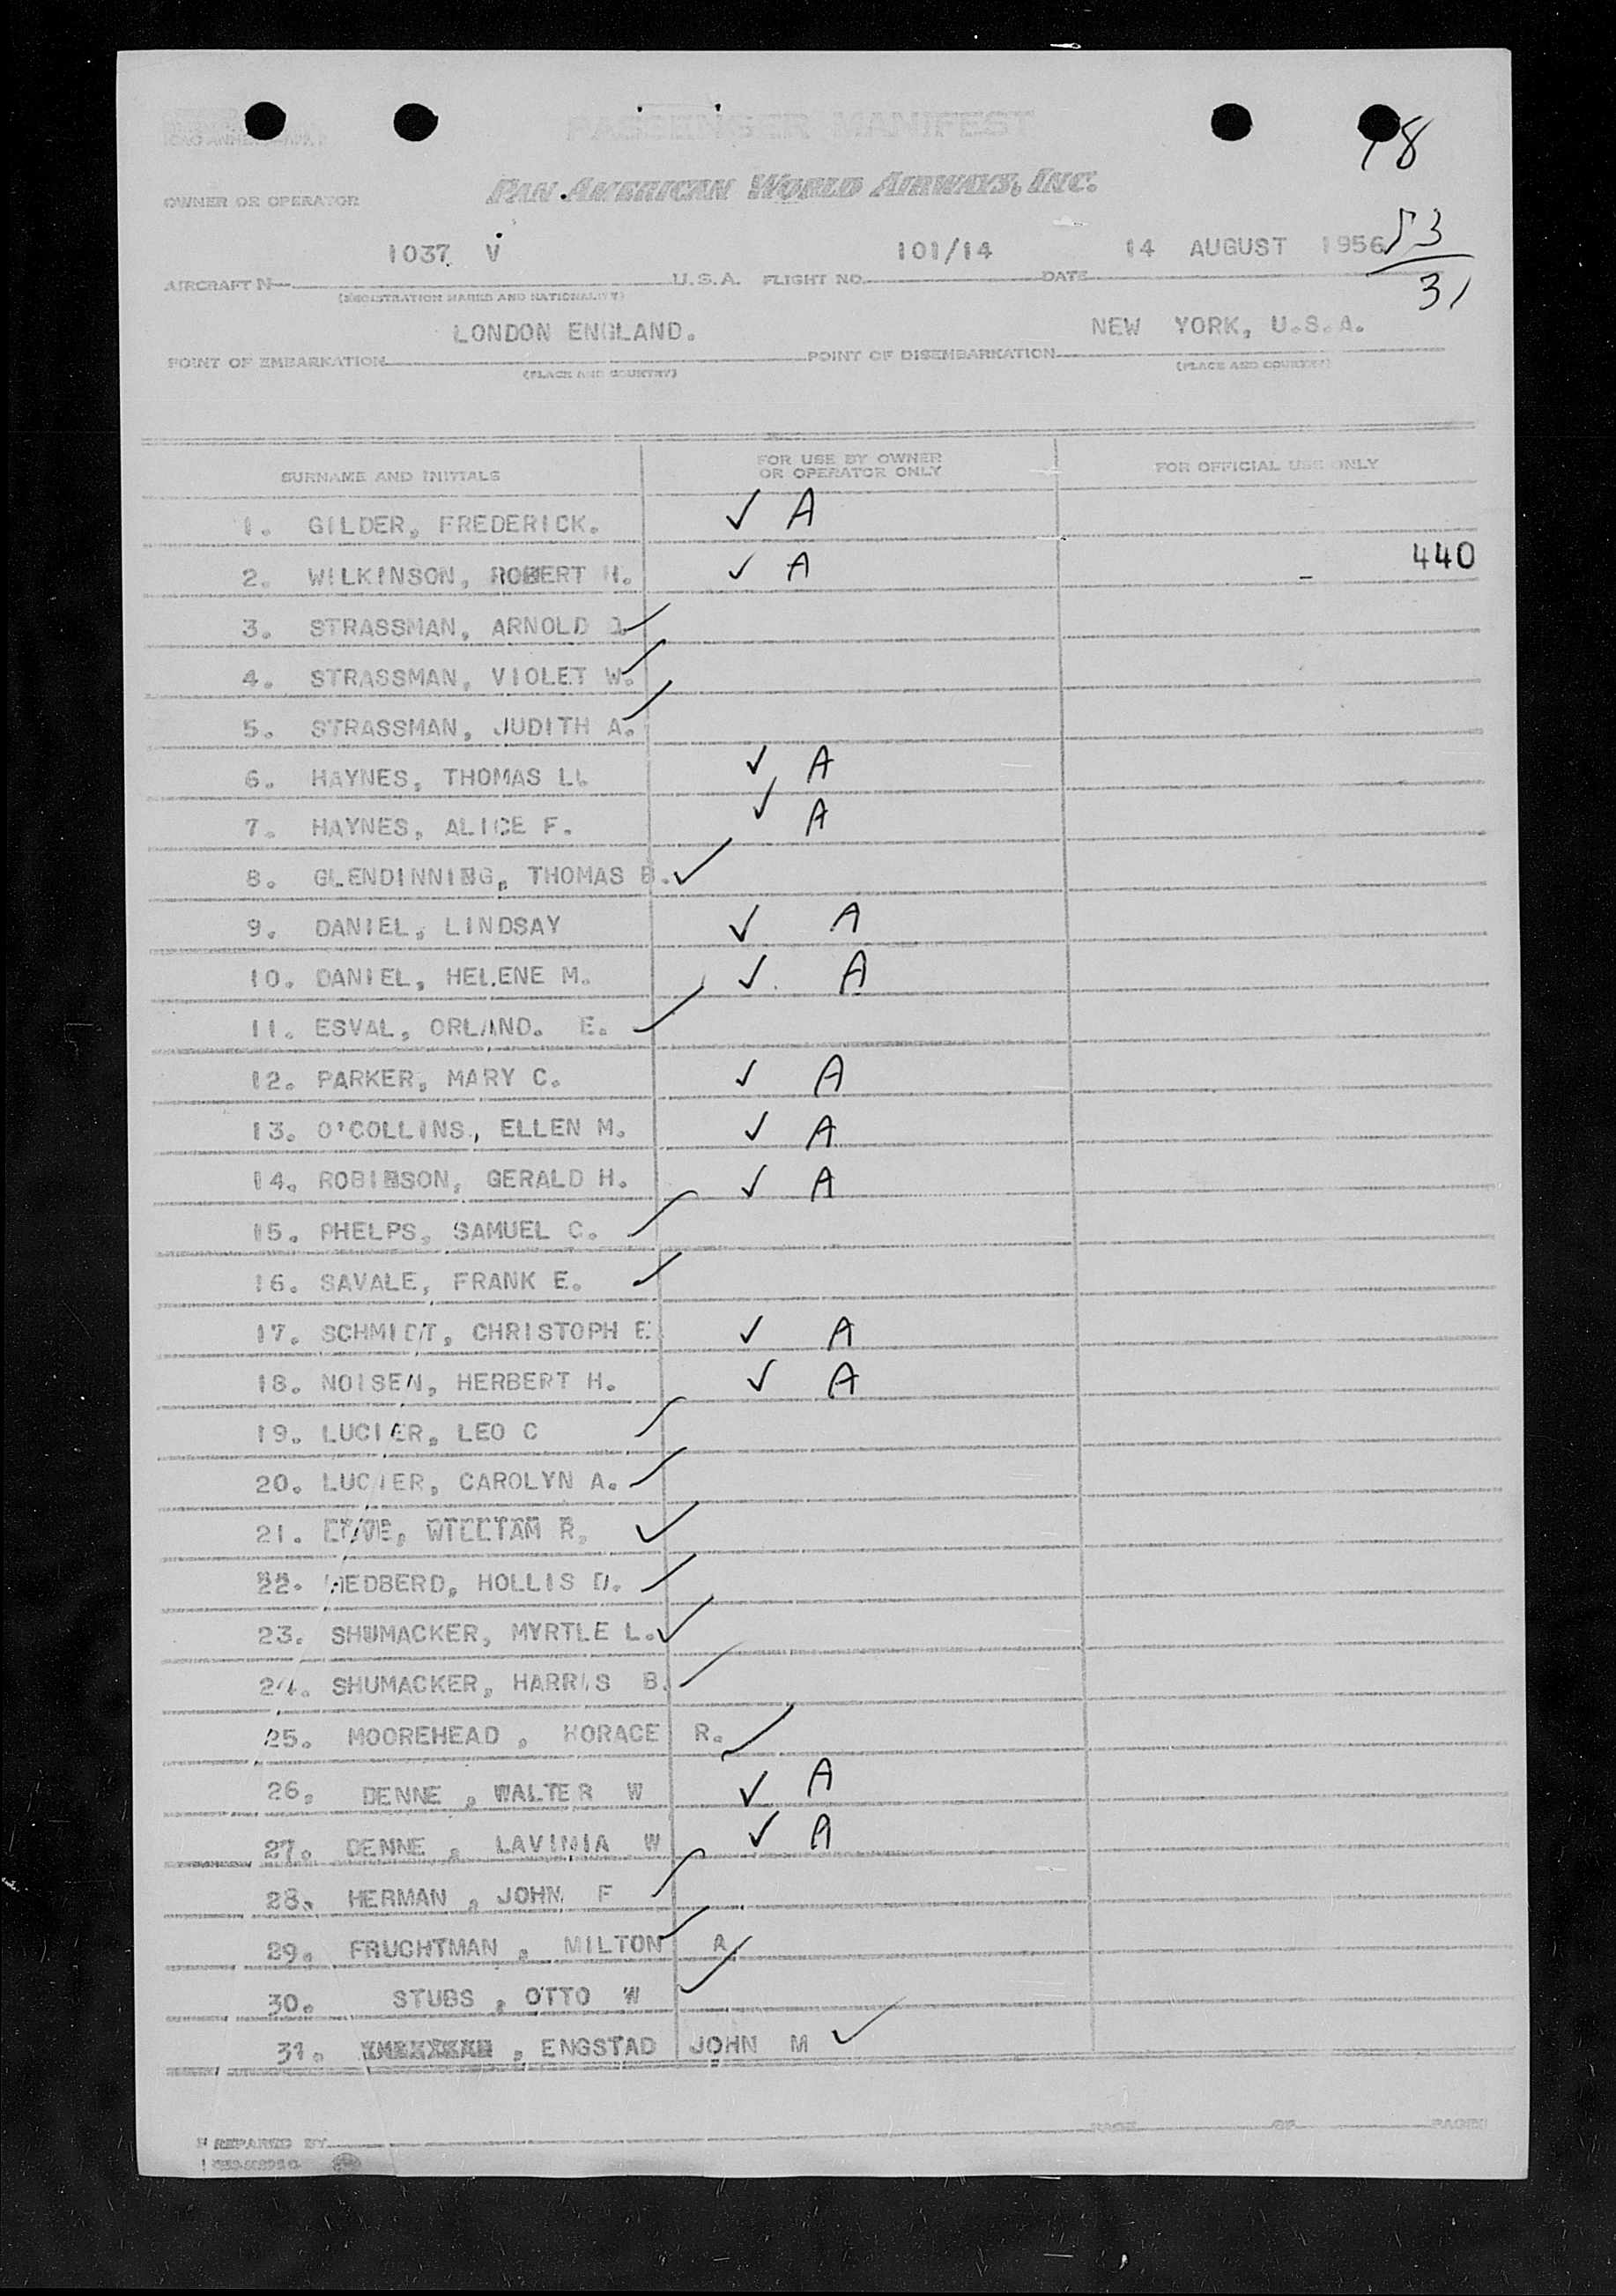 PASSENGER MANIFEST
18
OWNER OR OPERATOR PAN AMERICAN WORLD AIRWAYS, INC.
53
31
1037 V 101/14 14 AUGUST 1956
AIRCRAFT N U.S.A. FLIGHT NO. DATE
(REGISTRATION MARKS AND NATIONALITY)
LONDON ENGLAND. NEW YORK, U.S.A.
POINT OF EMBARKATION POINT OF DISEMBARKATION
(PLACE AND COUNTRY) (PLACE AND COUNTRY)
SURNAME AND INITIALS FOR USE BY OWNER OR OPERATOR ONLY FOR OFFICIAL USE ONLY
1. GILDER, FREDERICK. ✓ A
440
2. WILKINSON, ROBERT H. ✓ A
3. STRASSMAN, ARNOLD ✓
4. STRASSMAN, VIOLET W. ✓
5. STRASSMAN, JUDITH A. ✓
6. HAYNES, THOMAS L. ✓ A
7. HAYNES, ALICE F. ✓ A
8. GLENDINNING, THOMAS B. ✓
9. DANIEL, LINDSAY ✓ A
10. DANIEL, HELENE M. ✓ A
11. ESVAL, ORLAND. E. ✓
12. PARKER, MARY C. ✓ A
13. O'COLLINS, ELLEN M. ✓ A
14. ROBINSON, GERALD H. ✓ A
15. PHELPS, SAMUEL C. ✓
16. SAVALE, FRANK E. ✓
17. SCHMIDT, CHRISTOPH E. ✓ A
18. NOISEN, HERBERT H. ✓ A
19. LUCIER, LEO C ✓
20. LUCIER, CAROLYN A. ✓
21. WILLIAM R. ✓
22. HEDBERD, HOLLIS D. ✓
23. SHUMACKER, MYRTLE L. ✓
24. SHUMACKER, HARRIS B. ✓
25. MOOREHEAD , HORACE R. ✓
26. DENNE , WALTER W ✓ A
27. DENNE , LAVINIA W ✓ A
28. HERMAN , JOHN F ✓
29. FRUCHTMAN , MILTON A ✓
30. STUBS , OTTO W ✓
31. , ENGSTAD JOHN M ✓
PAGE OF PAGES
PREPARED BY